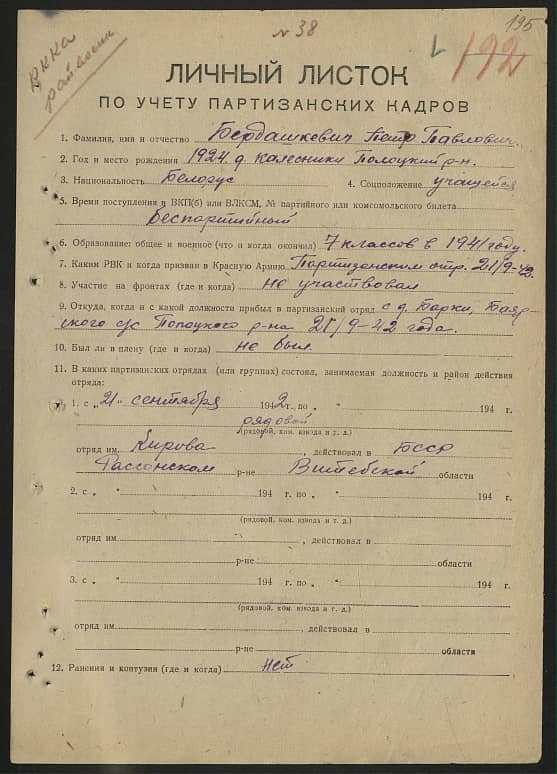 № 38
195
192
РККА
ЛИЧНЫЙ ЛИСТОК
ПО УЧЕТУ ПАРТИЗАНСКИХ КАДРОВ
1. Фамилия, имя и отчество Бердашкевич Петр Павлович.
2. Год и место рождения 1924 д. Калесники Полоцкий р-н.
3. Национальность Белорус 4. Соцположение учащейся
5. Время поступления в ВКП(б) или ВЛКСМ, № партийного или комсомольского билета
Беспартийный
6. Образование: общее и военное (что и когда окончил) 7 классов в 1941 году.
7. Каким РВК и когда призван в Красную Армию Партизанским отр. 21/9-42.
8. Участие на фронтах (где и когда) не участвовал
9. Откуда, когда и с какой должности прибыл в партизанский отряд с д. Барки, Бояр-
ского с/с Полоцкого р-на 21/9-42 года.
10. Был ли в плену (где и когда) не был.
11. В каких партизанских отрядах (или группах) состоял, занимаемая должность и район действия
отряда:
1. с „ 21 " сентября 1942 г. по „ " 194 г.
рядовой
(рядовой, ком. взвода и т. д.)
отряд им. Кирова, действовал в БССР
Рассонском р-не Витебской области
2. с „ " 194 г. по „ " 194 г.
(рядовой, ком. взвода и т. д.)
отряд им. , действовал в
р-не области
3. с „ " 194 г. по „ " 194 г.
(рядовой, ком. взвода и т. д.)
отряд им. , действовал в
р-не области
12. Ранения и контузии (где и когда) нет